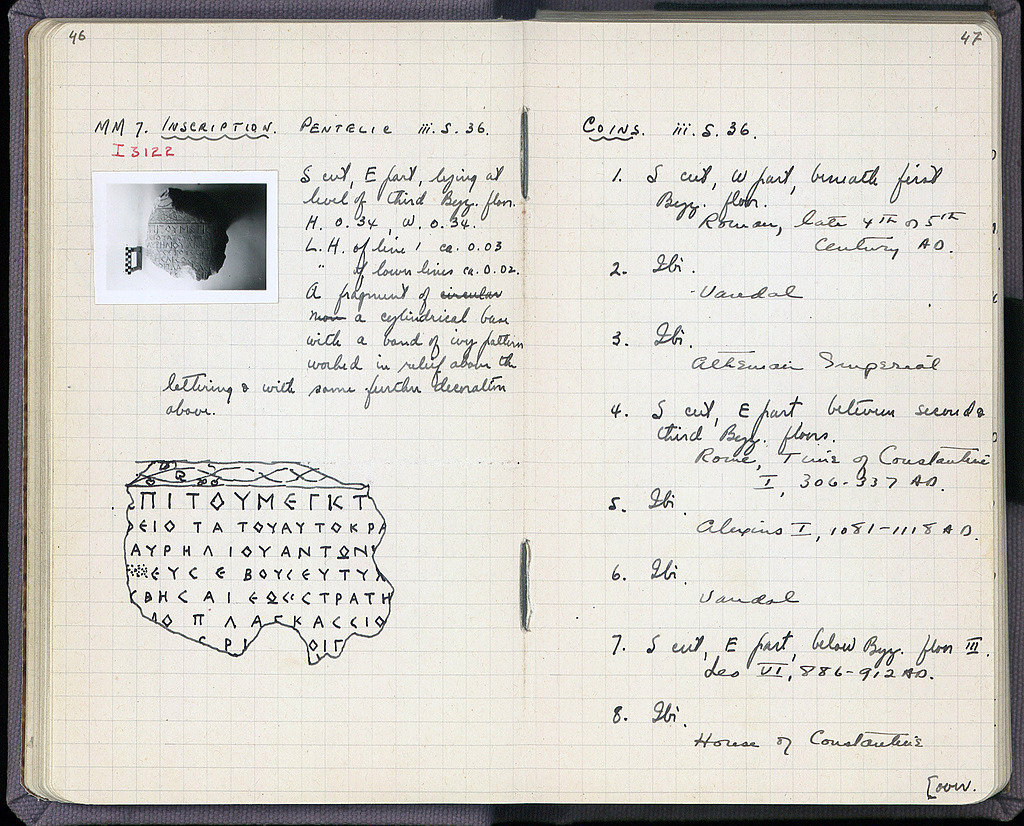 46
MM 7. INSCRIPTION. PENTELIC iii. 5. 36.
I 3122
S cut, E part, lying at
level of third Byz. floor.
H. 0.34, W. 0.34.
L.H. of line 1 ca. 0.03
" of lower lines ca. 0.02.
A fragment of circular
a cylindrical base
with a band of ivy pattern
worked in relief above the
lettering & with some further decoration
above.
ΠΙΤΟΥΜΕΓΚΤ
ΕΙΟΤΑΤΟΥΑΥΤΟΚΡΑ
ΑΥΡΗΛΙΟΥΑΝΤΩΝ
ΕΥCΕΒΟΥCΕΥΤΥΧ
CΒΗCΑΙΕΩCCΤΡΑΤΗ
ΛΟΠΛΑCΚΑCCΙΟ
CΡΙ ΟΙΓ
47
COINS. iii. 5. 36.
1. S cut, W part, beneath first
Byz. floor.
Roman, late 4TH or 5TH
Century AD.
2. Ibi.
Vandal
3. Ibi.
Athenian Imperial
4. S cut, E part between second &
third Byz. floors.
Rome, Time of Constantine
I, 306-337 AD.
5. Ibi.
Alexius I, 1081-1118 AD.
6. Ibi.
Vandal
7. S cut, E part, below Byz. floor III.
Leo VI, 886-912 AD.
8. Ibi.
House of Constantine
[over.